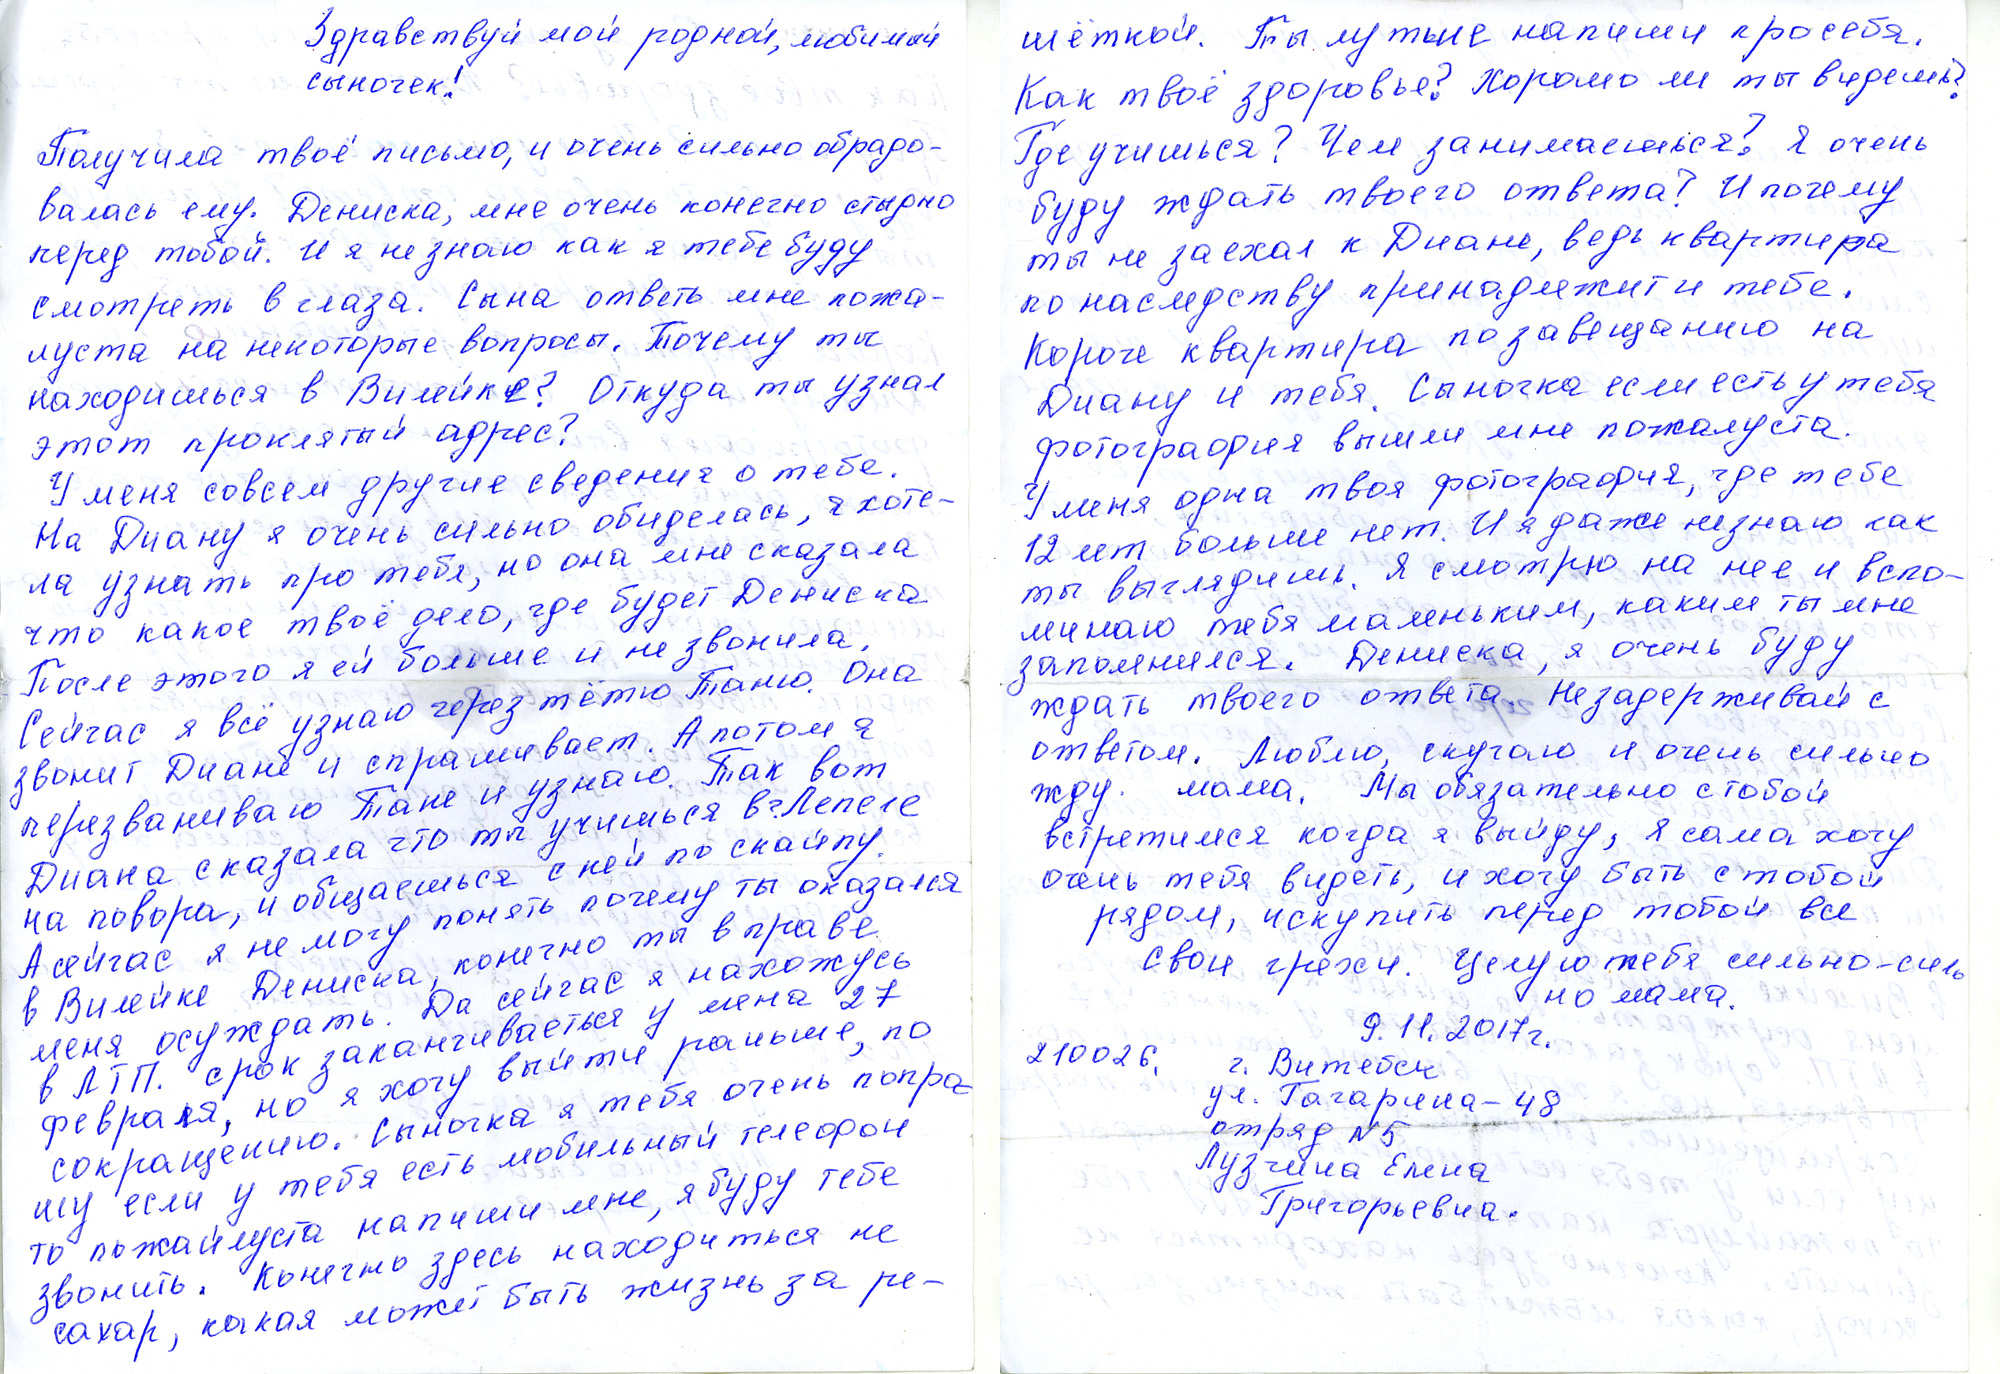 Здравствуй мой родной, любимый
сыночек!
Получила твоё письмо, и очень сильно обрадо-
валась ему. Дениска, мне очень конечно стыдно
перед тобой. И я не знаю как я тебе буду
смотреть в глаза. Сына ответь мне пожа-
луста на некоторые вопросы. Почему ты
находишься в Вилейке? Откуда ты узнал
этот проклятый адрес?
У меня совсем другие сведения о тебе.
На Диану я очень сильно обиделась, я хоте-
ла узнать про тебя, но она мне сказала
что какое твоё дело, где будет Дениска
После этого я ей больше и не звонила.
Сейчас я всё узнаю через тётю Таню. Она
звонит Диане и спрашивает. А потом я
перезваниваю Тане и узнаю. Так вот
Диана сказала что ты учишься в г. Лепеле
на повора, и общаешься с ней по скайпу.
А сейчас я не могу понять почему ты оказался
в Вилейке Дениска, конечно ты в праве
меня осуждать. Да сейчас я нахожусь
в ЛТП. срок заканчиваеться у меня 27
февраля, но я хочу выйти раньше, по
сокращению. Сыночка я тебя очень попра
шу если у тебя есть мобильный телефон
то пожайлуста напиши мне, я буду тебе
звонить. Конечно здесь находиться не
сахар, какая может быть жизнь за ре-
шёткой. Ты лутьше напиши про себя.
Как твоё здоровье? Хорошо ли ты видешь?
Где учишься? Чем занимаешься? Я очень
буду ждать твоего ответа? И почему
ты не заехал к Диане, ведь квартира
по наследству принадлежит и тебе.
Короче квартира по завещанию на
Диану и тебя. Сыночка если есть у тебя
фотография вышли мне пожалуста.
У меня одна твоя фотография, где тебе
12 лет больше нет. И я даже незнаю как
ты выглядишь. Я смотрю на нее и вспо-
минаю тебя маленьким, каким ты мне
запомнился. Дениска, я очень буду
ждать твоего ответа. Незадерживай с
ответом. Люблю, скучаю и очень сильно
жду. мама. Мы обязательно с тобой
встретимся когда я выйду, я сама хочу
очень тебя видеть, и хочу быть с тобой
рядом, искупить перед тобой все
свои грехи. Целую тебя сильно-силь
но мама.
9. 11. 2017г.
210026. г. Витебск
ул. Гагарина-48
отряд N5
Лузгина Елена
Григорьевна.